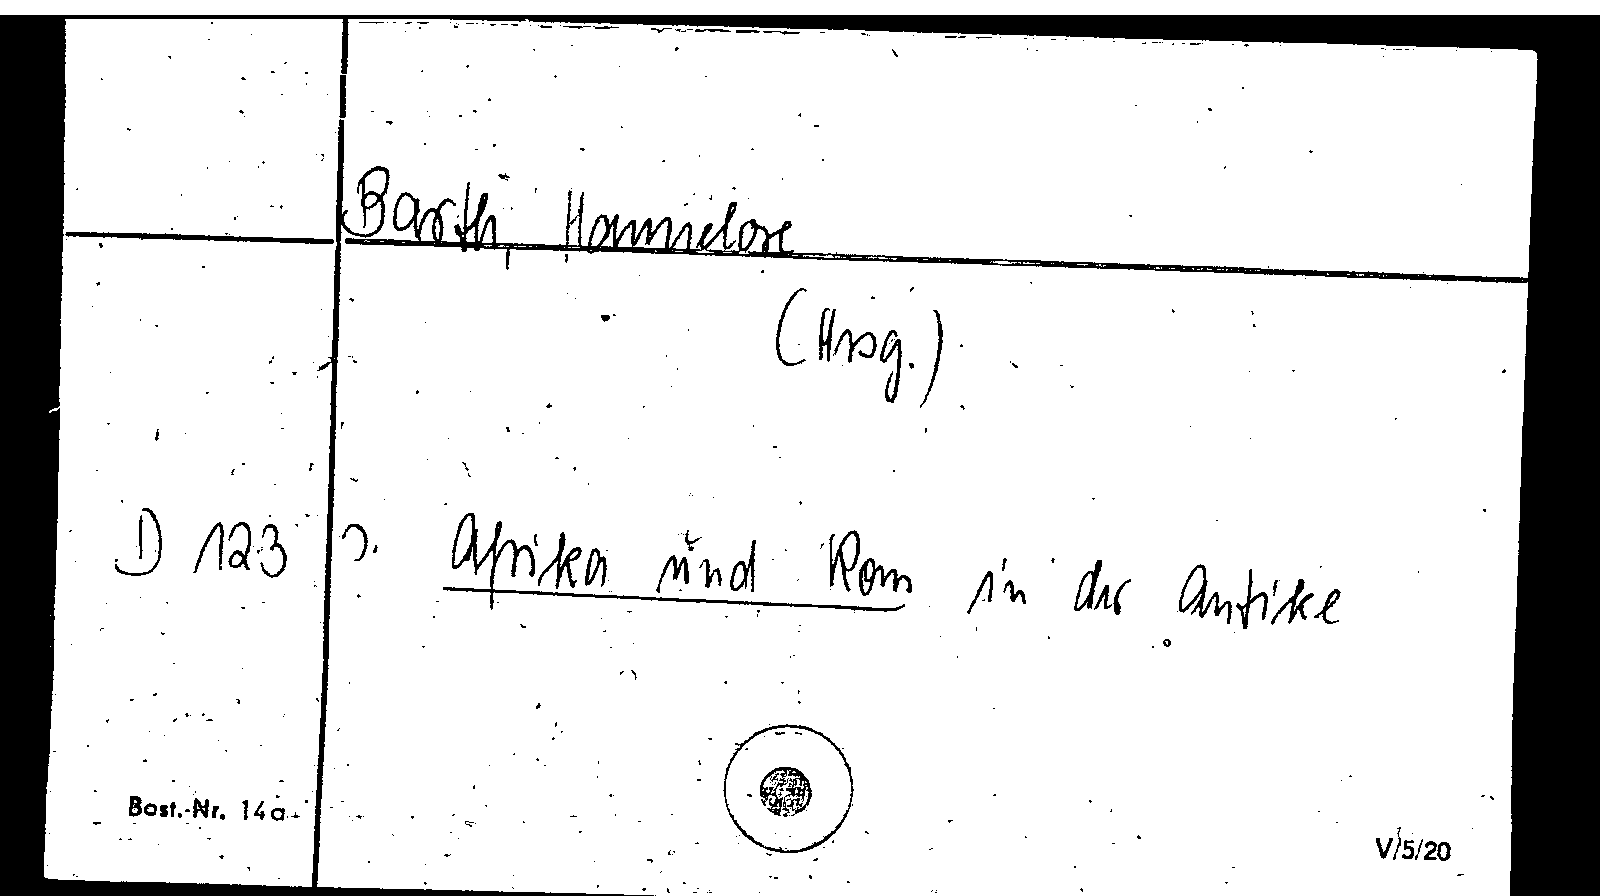 Barth, Hannelore
(Hrsg.)
D 123 Afrika und Rom in der Antike
Best.-Nr. 14a
V/5/20